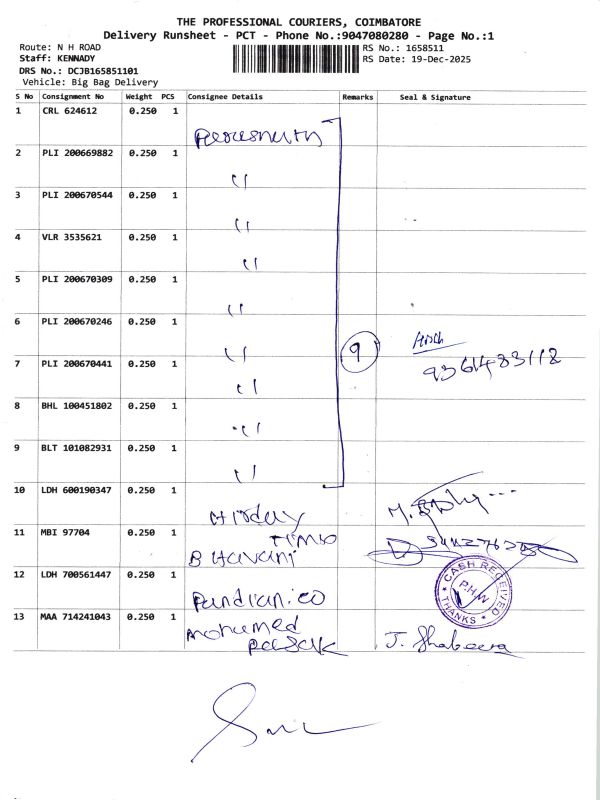 THE PROFESSIONAL COURIERS, COIMBATORE
Delivery Runsheet - PCT - Phone No.:9047080280 - Page No.:1
Route: N H ROAD
RS No.: 1658511
Staff: KENNADY
RS Date: 19-Dec-2025
DRS No.: DCJB165851101
Vehicle: Big Bag Delivery
S No Consignment No Weight PCS Consignee Details Remarks Seal & Signature
1 CRL 624612 0.250 1
2 PLI 200669882 0.250 1
3 PLI 200670544 0.250 1
4 VLR 3535621 0.250 1
5 PLI 200670309 0.250 1
6 PLI 200670246 0.250 1
9
9361483118
7 PLI 200670441 0.250 1
8 BHL 100451802 0.250 1
9 BLT 101082931 0.250 1
10 LDH 600190347 0.250 1
11 MBI 97704 0.250 1
B Havani
12 LDH 700561447 0.250 1
Pandian.co
CASH RECEIVED
P.H.W
THANKS
13 MAA 714241043 0.250 1
mohamed
J. Shabeera